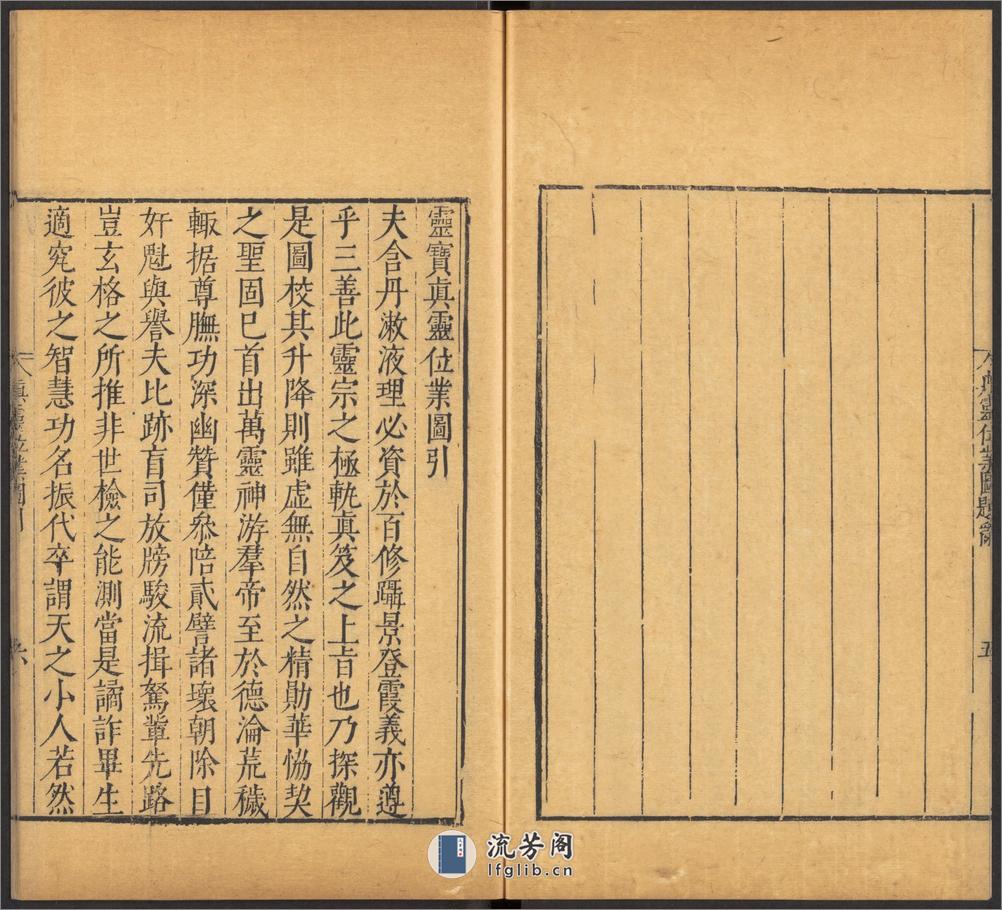 真靈位業圖題辭
五
靈寶眞靈位業圖引
夫含丹漱液理必資於百修躡景登霞義亦遵
乎三善此靈宗之極軌眞笈之上㫖也乃探觀
是圖校其升降則雖虛無自然之精勛華恊契
之聖固已首出萬靈神游羣帝至於德淪荒穢
輙据尊膴功深幽贊僅叅陪貳譬諸壞朝除目
奸魁與譽夫比跡盲司放牓駿流揖駑輩先路
豈玄格之所推非世檢之能測當是譎詐畢生
適究彼之智慧功名振代卒謂天之小人若然
眞靈位業圖引
六
流芳阁
lfglib.cn